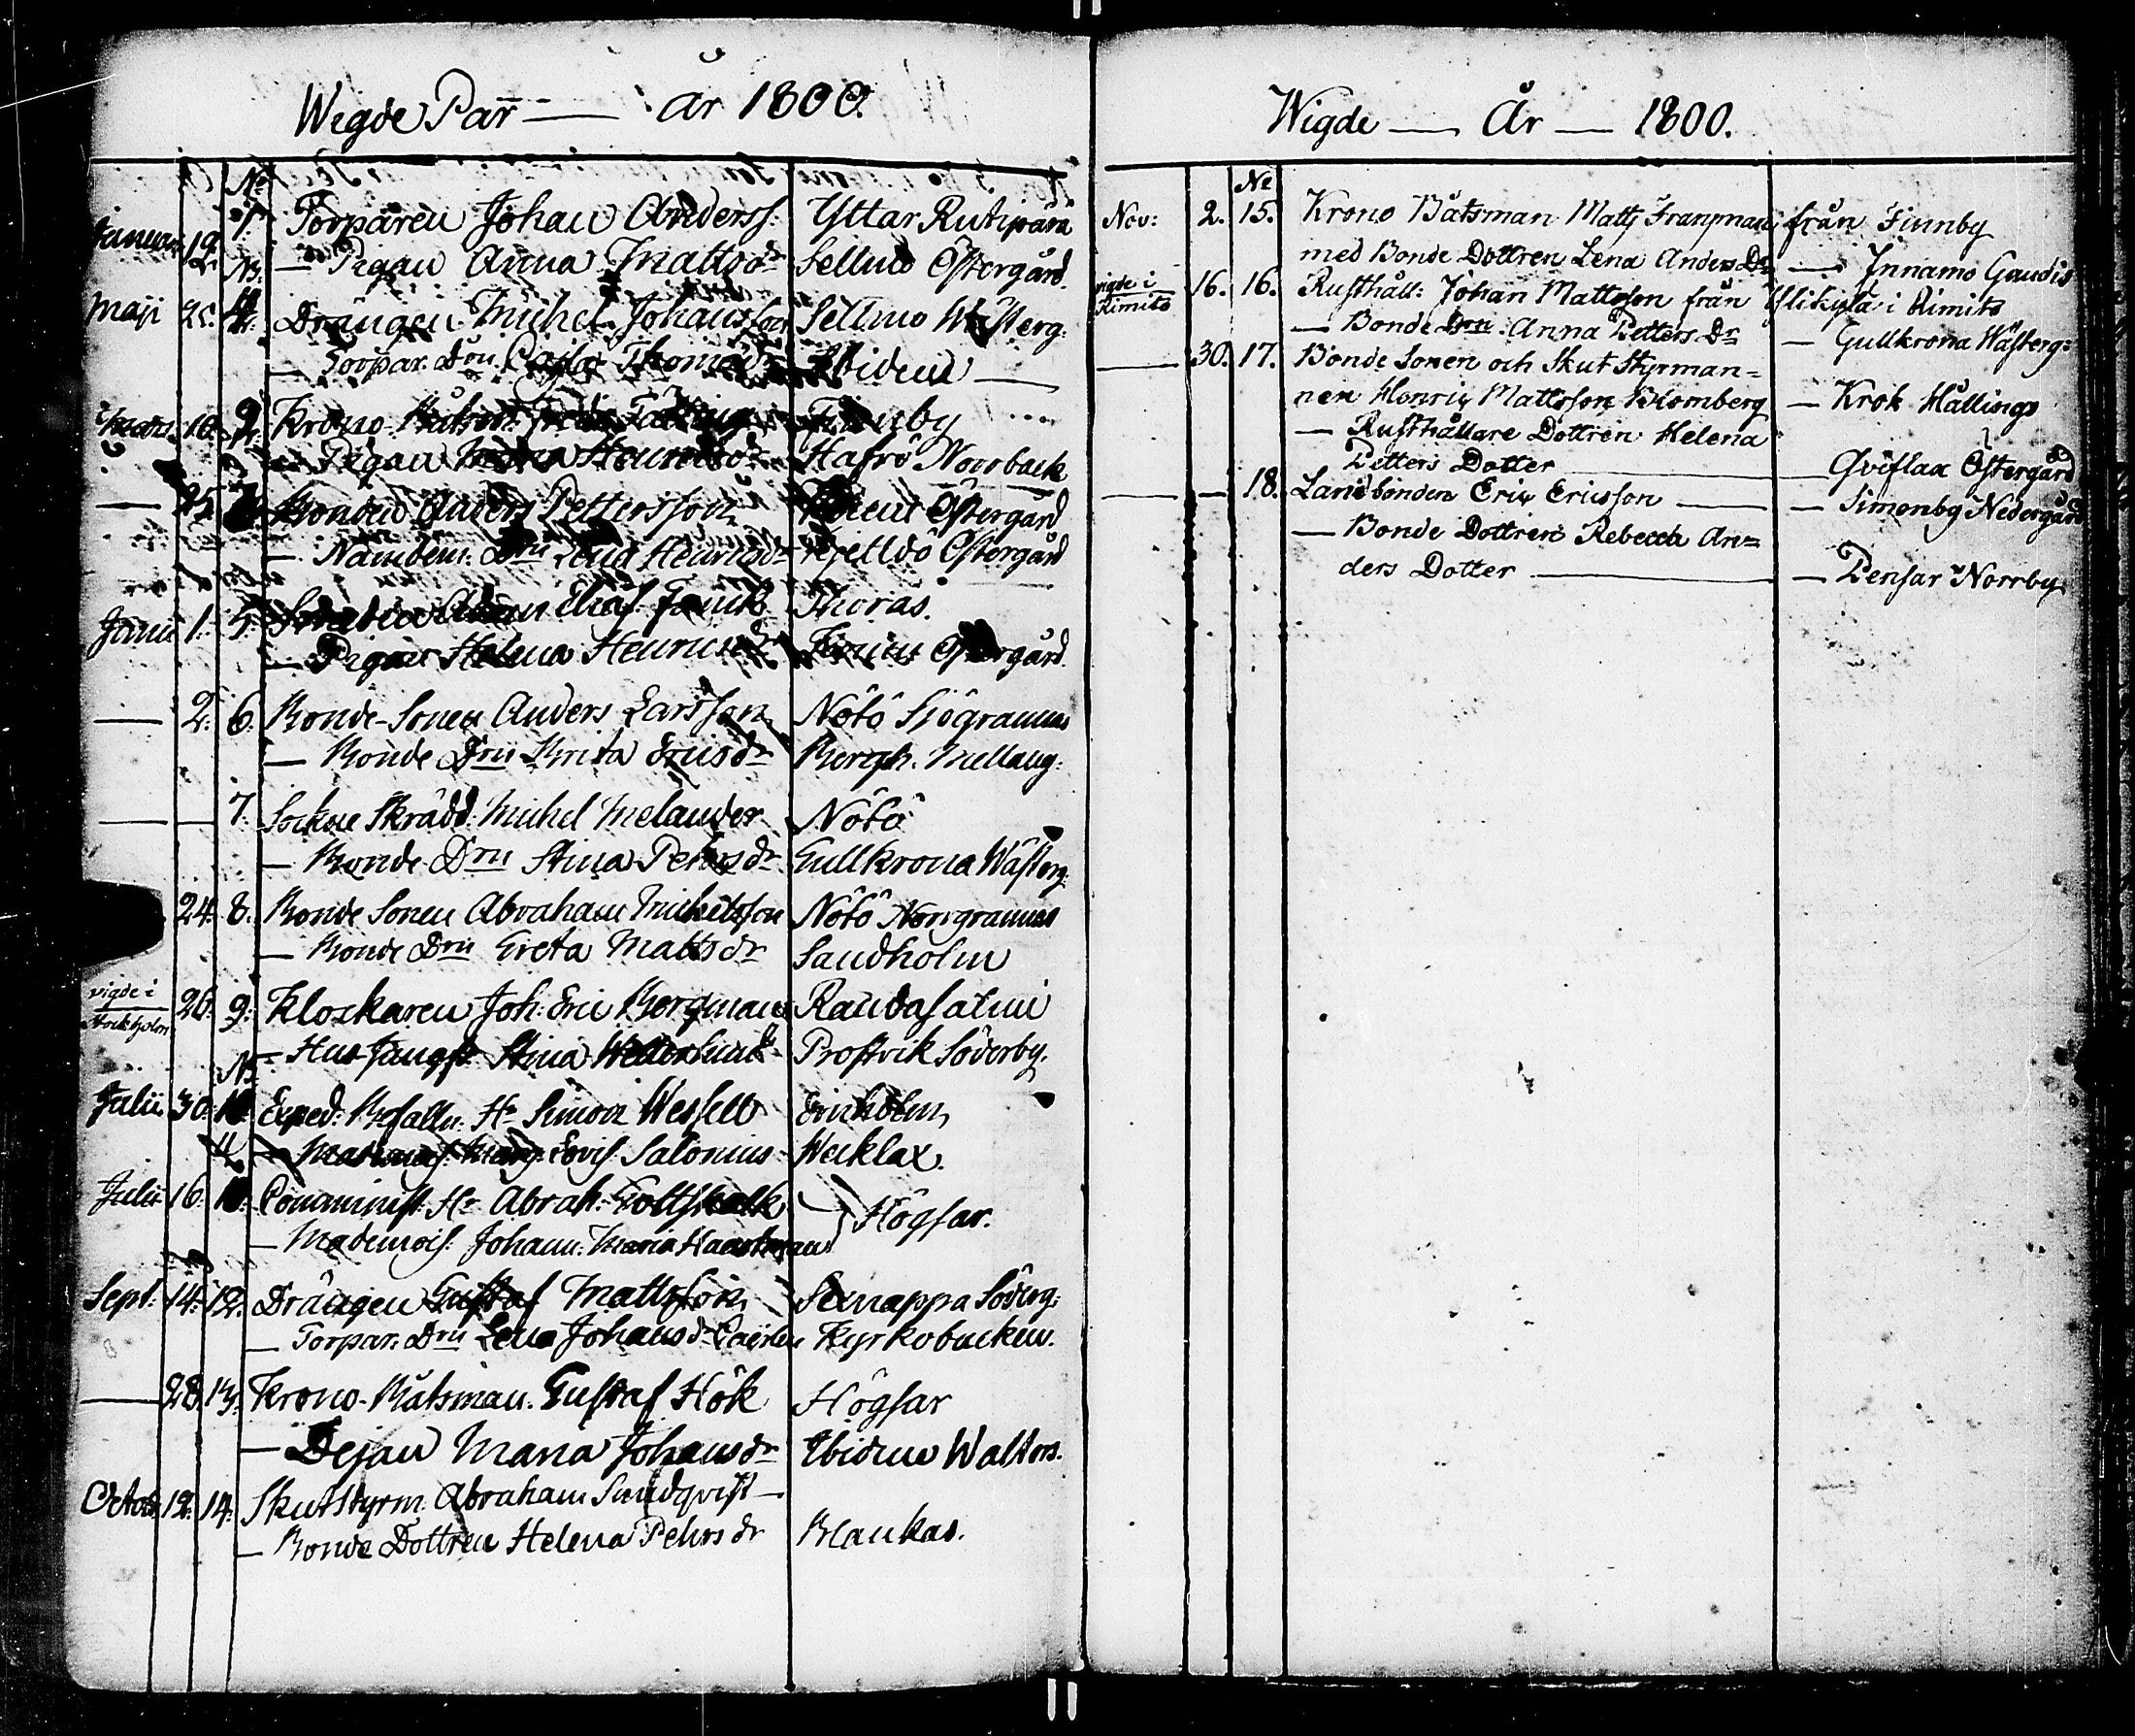 Wigde Par — år 1800.
No
Januar: 19. 1. Torparen Johan Anderss: Yttar Rutipärä
— Pigan Anna Mattsdr Sellmo Östergård
No
Maji 25. Drängen Michel Johansson Sellmo Wästerg:
— Torpar. Drn Thomædr Ibidem —
10. Krono Finby
— Pigan Henricsdr Hafrö Norrback
— 25. Bonden Anders Pettersson Östergård
— Nämdem: Drn Lena Henricsdr Östergård
Junii 1. 5. Elias Thoras.
— Pigan Helena Henricsdr Östergård.
— 2. 6. Bonde-Sonen Anders Larsson Nötö Siögramms
— Bonde Drn Brita Ericsdr Bergh. Mellang:
— — 7. Sockne Skrädd: Michel Melander Nötö
— Bonde Drn Stina Pehrsdr Gullkrona Wästerg:
24. 8. Bonde Sonen Abraham Michelsson Nötö Norrgramms
— Bonde Drn Greta Mattsdr Sandholm
vigde i
Stockholm 26. 9. Klockaren Joh: Eric Bergman Randasalmi
— Hus Jungfr: Stina Prostvik Söderby.
No
Julii 30. 10. Exped: Befalln. Hr Simon Wessell Ericholm
11 — Lovis: Salonius Wecklax.
Julii 16. Comminist: Hr Abrah: Gottskalk } Högsar.
— Mademois: Johann: Maria Haartman
Sept: 14. 12. Drängen Gustaf Mattsson Sexnappa Söderg:
— Torpar. Drn Lena Johansdr Kyrkobacken.
— 28. 13. Krono-Båtsman. Gustaf Hök Högsar
— Dejan Maria Johansdr Ibidem Walters.
Octob: 12. 14. Skutstyrm: Abraham Sundqvist —
— Bonde Dottren Helena Pehrsdr Blankas.
Wigde — År — 1800.
No
Nov: 2. 15. Krono Båtsman Matts Franpman från Finnby
med Bonde Dottren Lena Anders Dr — Innamo Gaudis
vigde i
Rimito 16. 16. Rusthåll: Johan Mattsson från i Rimito
— Bonde Drn Anna Petters Dr — Gullkrona Wästerg:
— 30. 17. Bonde Sonen och Skut Styrman=
nen Henric Mattsson Blomberg — Krok Hällings
— Rusthållare Dottren Helena
Petters Dotter — Qviflax Östergård
— — 18. Landbonden Eric Ericsson — Simonby Nedergård
— Bonde Dottren Rebecca An=
ders Dotter — Pensar Norrby